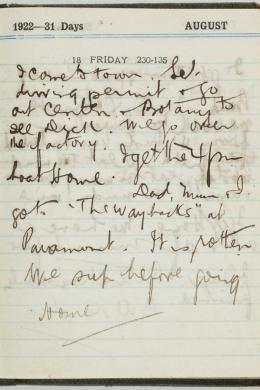 1922—31 Days AUGUST
18 FRIDAY 230-135
I come to town. Get
driving permit & go
out Centen. & Botany to
see Dick. We go over
the factory. I get the 4 pm
boat Home.
Dad, Mum & I
go to "The Waybacks" at
Paramount. It is rotten
We sup before going
Home